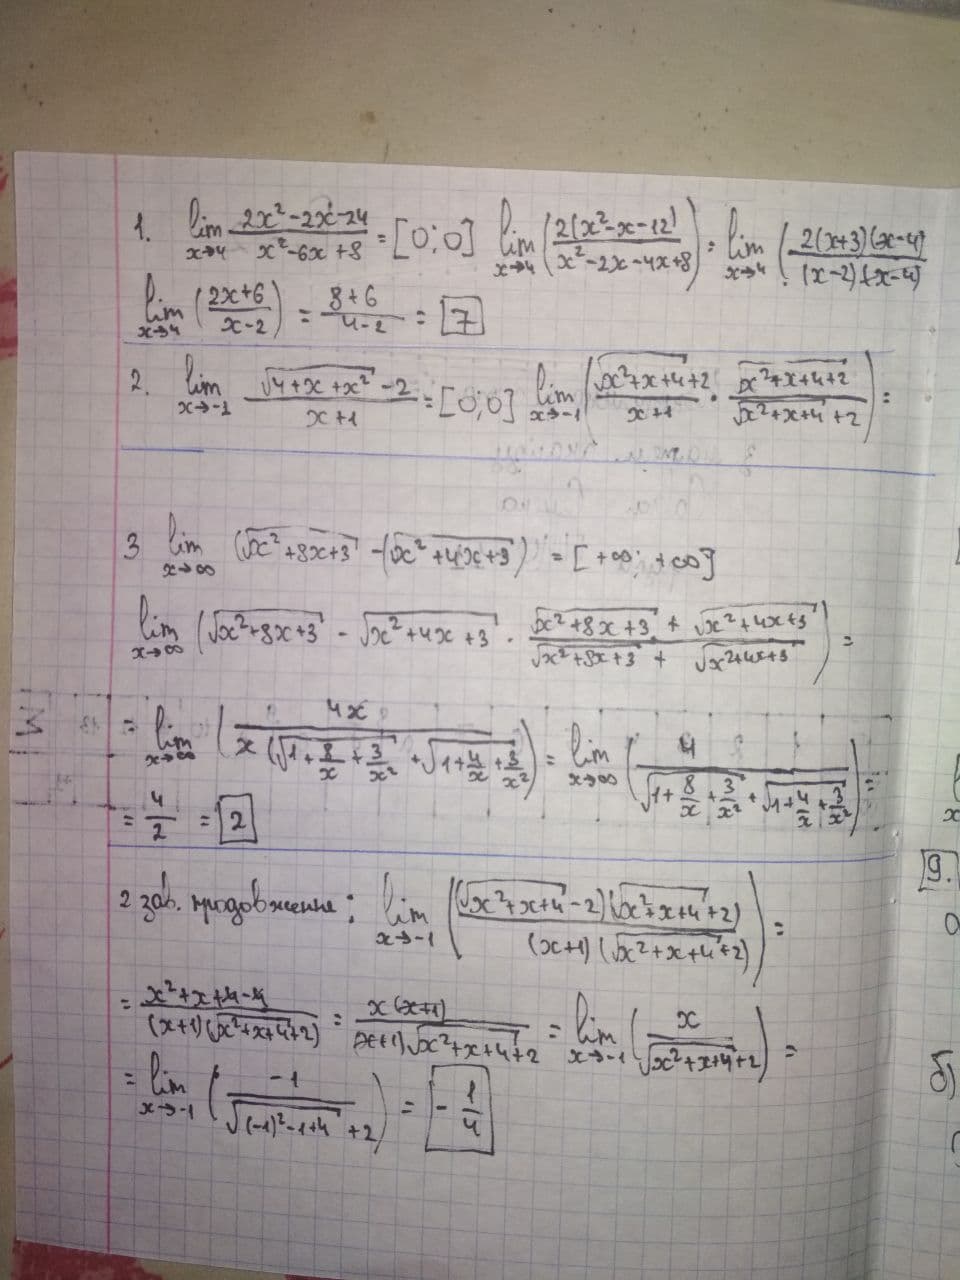 1. lim x→4 (2x²-2x-24)/(x²-6x+8) = [0;0] lim x→4 ((2(x²-x-12))/(x²-2x-4x+8)) = lim x→4 ((2(x+3)(x-4))/((x-2)(x-4))
lim x→4 ((2x+6)/(x-2)) = (8+6)/(4-2) = 7
2. lim x→-1 (√(4+x+x²) -2)/(x+1) = [0;0] lim x→-1 ((√(x²+x+4)+2)/(x+1) · (√(x²+x+4+2))/(√(x²+x+4) +2)) =
3 lim x→∞ (√(x²+8x+3) -(√(x²+4x+3)) = [+∞; +∞]
lim x→∞ (√(x²+8x+3) - √(x²+4x+3) · (√(x²+8x+3) + √(x²+4x+3))/(√(x²+8x+3) + √(x²+4x+3))) =
= lim x→∞ (4x/(x(√(1+8/x+3/x²) +√(1+4/x+3/x²))) = lim x→∞ (4/(√(1+8/x+3/x²) +√(1+4/x+3/x²))) =
= 4/2 = 2
2 зав. продовження: lim x→-1 (((√(x²+x+4) -2)(√(x²+x+4) +2))/((x+1)(√(x²+x+4) +2))) =
= (x²+x+4-4)/((x+1)(√(x²+x+4) +2)) = (x(x+1))/((x+1)√(x²+x+4) +2) = lim x→-1 (x/(√(x²+x+4) +2)) =
= lim x→-1 (-1/(√((-1)²-1+4) +2)) = -1/4
9.
а
б)